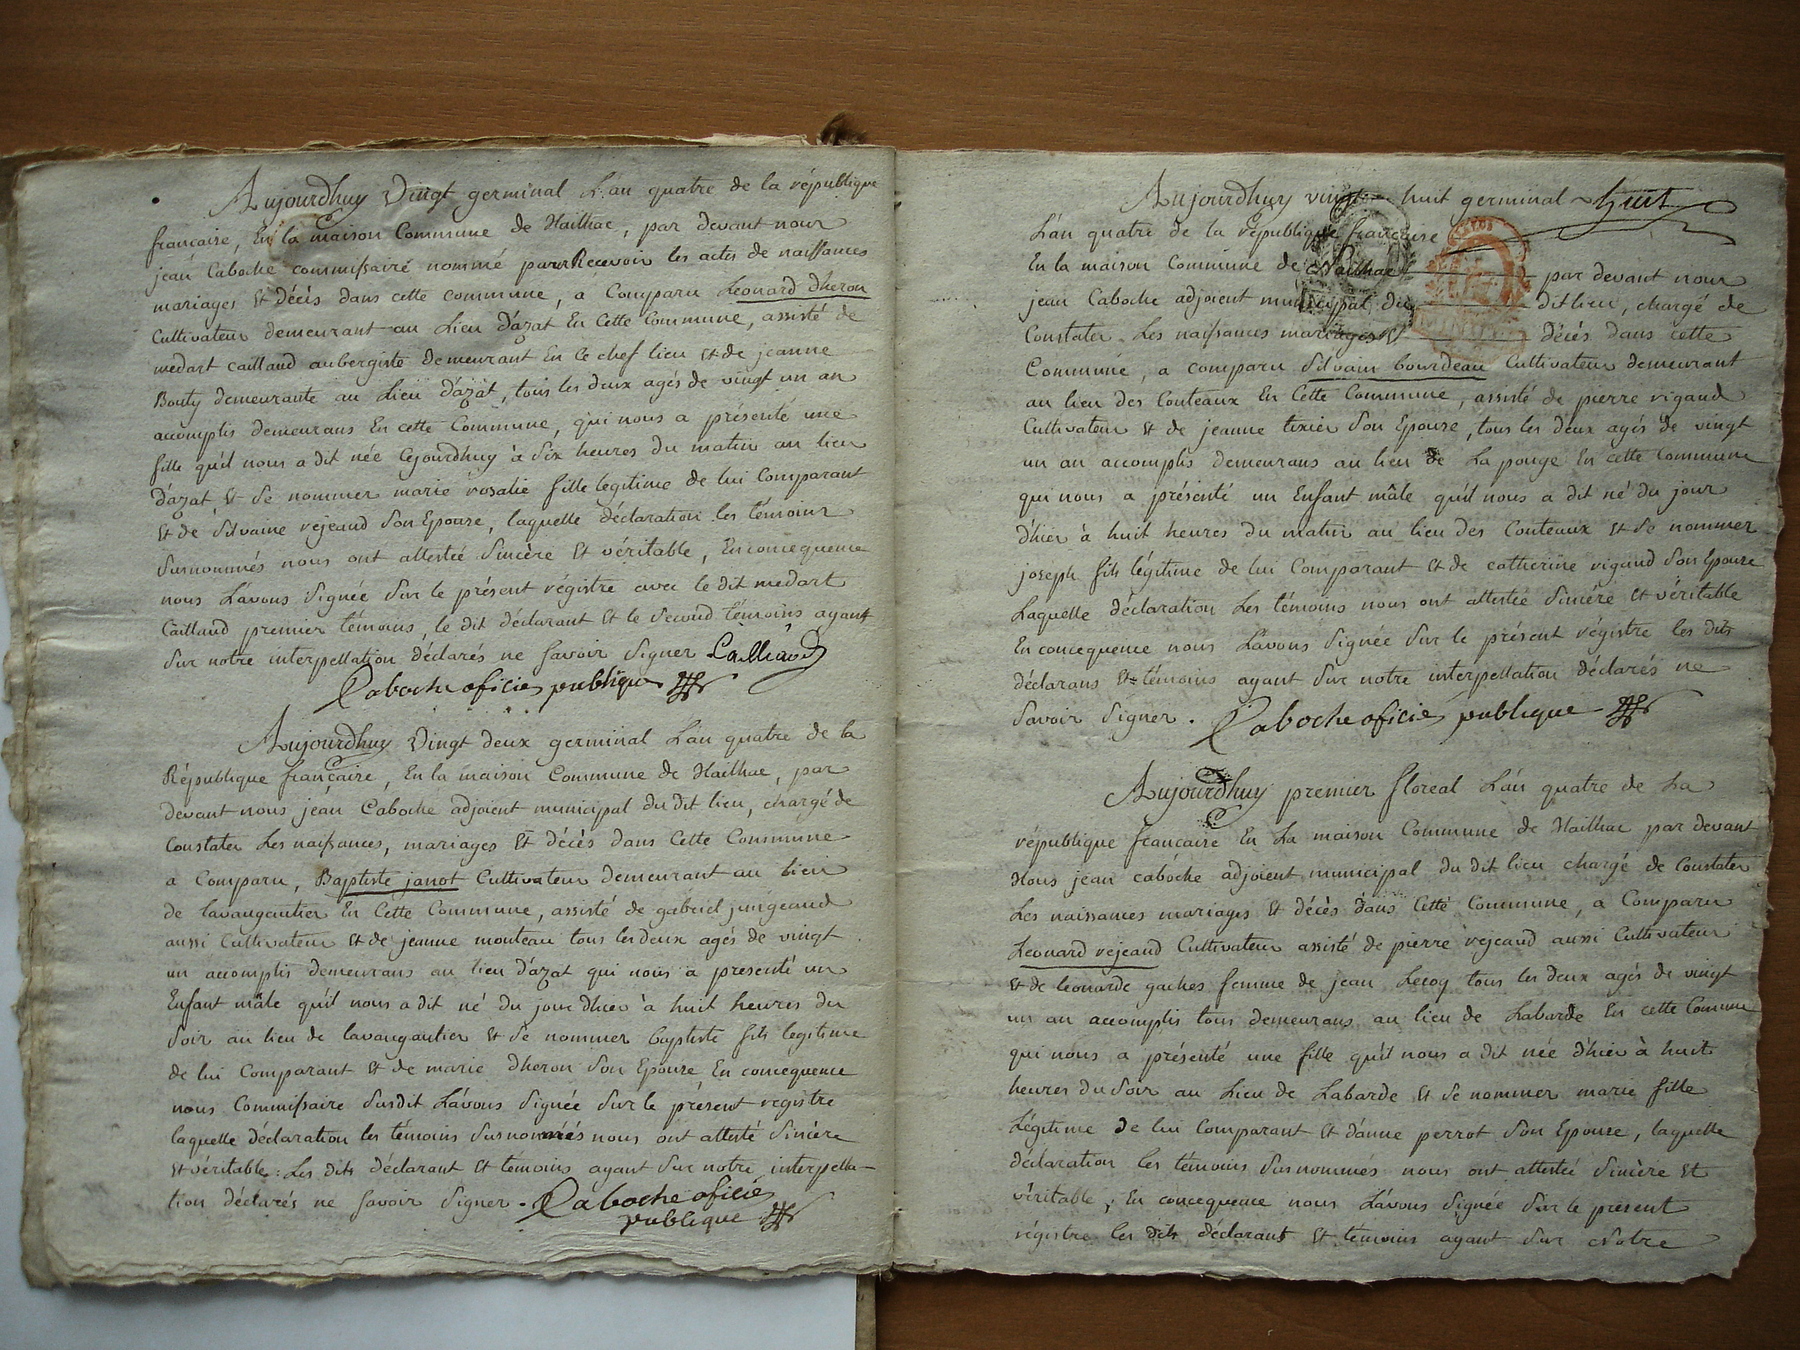 Aujourdhuy Vingt germinal L'an quatre de la république
francaire, En la maison Commune de Nailhac, par devant nous
jean Caboche commissairé nommé pour Recevoir les actes de naissances
mariages Et décès dans cette commune, a Comparu Leonard dheron
Cultivateur demeurant au Lieu D'azat En Cette Commune, assisté de
medart caillaud aubergiste demeurant En ce chef lieu Et de jeanne
Bouty demeurante au Lieu D'azat, tous les deux agés de vingt un an
accomplis demeurans En cette Commune, qui nous a présenté une
fille qu'il nous a dit née Cejourdhuy à Six heures du matin au lieu
D'azat, Et Se nommer marie rosalie fille legitime de lui Comparant
Et de Silvaine rejeaud Son Epouse, laquelle déclaration les témoins
Susnommés nous ont attestée Sincère Et véritable, En concequence
nous L'avons Signée Sur le présent régistre avec le dit medart
Caillaud premier témoins, le dit déclarant Et le Second témoins ayant
Sur notre interpellation déclarés ne Savoir Signer Cailliaud
Caboche oficier publique
Aujourdhuy Vingt deux germinal L'an quatre de la
République francaire, En la maison Commune de Nailhac, par
devant nous jean Caboche adjoient municipal du dit lieu, chargé de
Constater Les naissances, mariages Et décès dans Cette Commune
a Comparu, Baptiste janot Cultivateur demeurant au Lieu
de lavaugautier En Cette Commune, assisté de gabriel jungeaud
aussi Cultivateur Et de jeanne monteau tous les deux agés de vingt
un accomplis demeurans au lieu D'azat qui nous a presenté un
Enfant mâle qu'il nous a dit né du jour dhier à huit heures du
Soir au lieu de lavaugautier Et Se nommer baptiste fils legitime
de lui Comparant Et de marie dheron Son Epouse En concequence
nous Commissaire Susdit L'avons Signée Sur le présent registre
laquelle déclaration les témoins Susnommés nous ont attesté Sincère
Et véritable : Les dits déclarant Et témoins ayant Sur notre interpella-
tion déclarés ne Savoir Signer. Caboche oficier
publique
Aujourdhuy vingt huit germinal huit
L'an quatre de la république francaise
En la maison Commune de Nailhac par devant nous
jean Caboche adjoient municipal du dit lieu, chargé de
Constater Les naissances mariages Et décès dans cette
Commune, a comparu Silvain bourdeau Cultivateur demeurant
au lieu des Couteaux En Cette Commune, assisté de pierre rigaud
Cultivateur Et de jeanne texier Son Epouse, tous les deux agés de vingt
un an accomplis demeurans au lieu de La pouge En cette Commune
qui nous a présenté un Enfant mâle qu'il nous a dit né du jour
d'hier à huit heures du matin au lieu des Couteaux Et Se nommer
joseph fils légitime de lui Comparant Et de catherine rigaud Son Epouse
Laquelle déclaration Les témoins nous ont attestée Sincère Et véritable
En concequence nous L'avons Signée Sur le présent régistre les dits
déclarans Et témoins ayant Sur notre interpellation déclarés ne
Savoir Signer. Caboche oficier publique
Aujourdhuy premier floreal L'an quatre de La
république francaire En La maison Commune de Nailhac par devant
Nous jean caboche adjoient municipal du dit lieu chargé de Constater
Les naissances mariages Et décès dans Cette Commune, a Comparu
Leonard rejeaud Cultivateur assisté de pierre rejeaud aussi Cultivateur
Et de leonarde gaches femme de jean Lecoq tous les deux agés de vingt
un an accomplis tous demeurans au lieu de Labarde En cette Commune
qui nous a présenté une fille qu'il nous a dit née d'hier à huit
heures du Soir au Lieu de Labarde Et Se nommer marie fille
Légitime de lui Comparant Et d'anne perrot Son Epouse, laquelle
déclaration les témoins Susnommés nous ont attestée Sincère Et
véritable, En concequence nous L'avons Signée Sur le present
régistre les dits déclarant Et témoins ayant Sur Notre